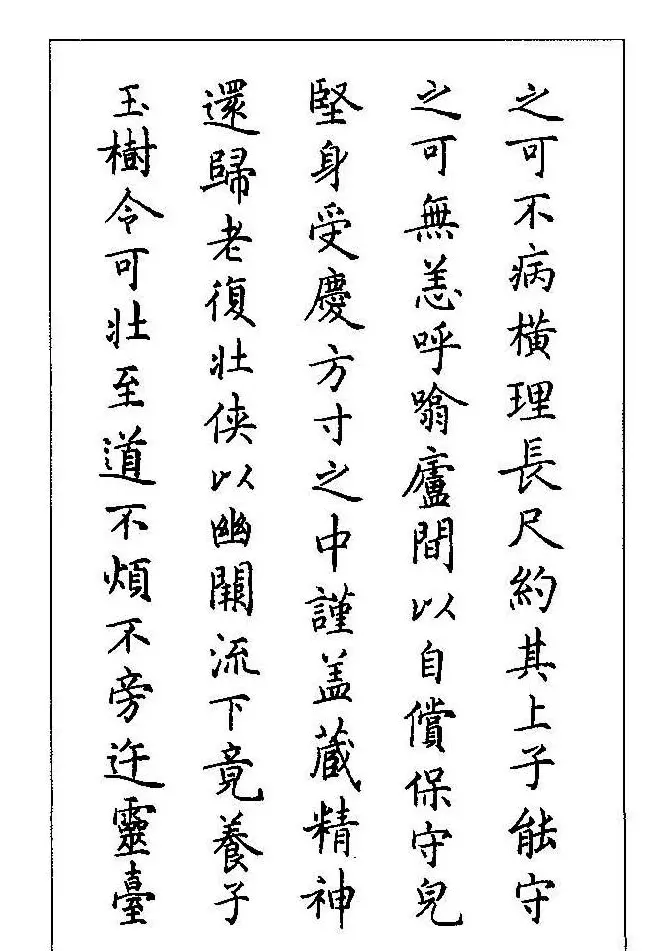 之可不病橫理長尺約其上子能守
之可無恙呼噏廬間以自償保守皃
堅身受慶方寸之中謹盖藏精神
還歸老復壯俠以幽闕流下竟養子
玉樹令可壯至道不煩不旁迕靈臺